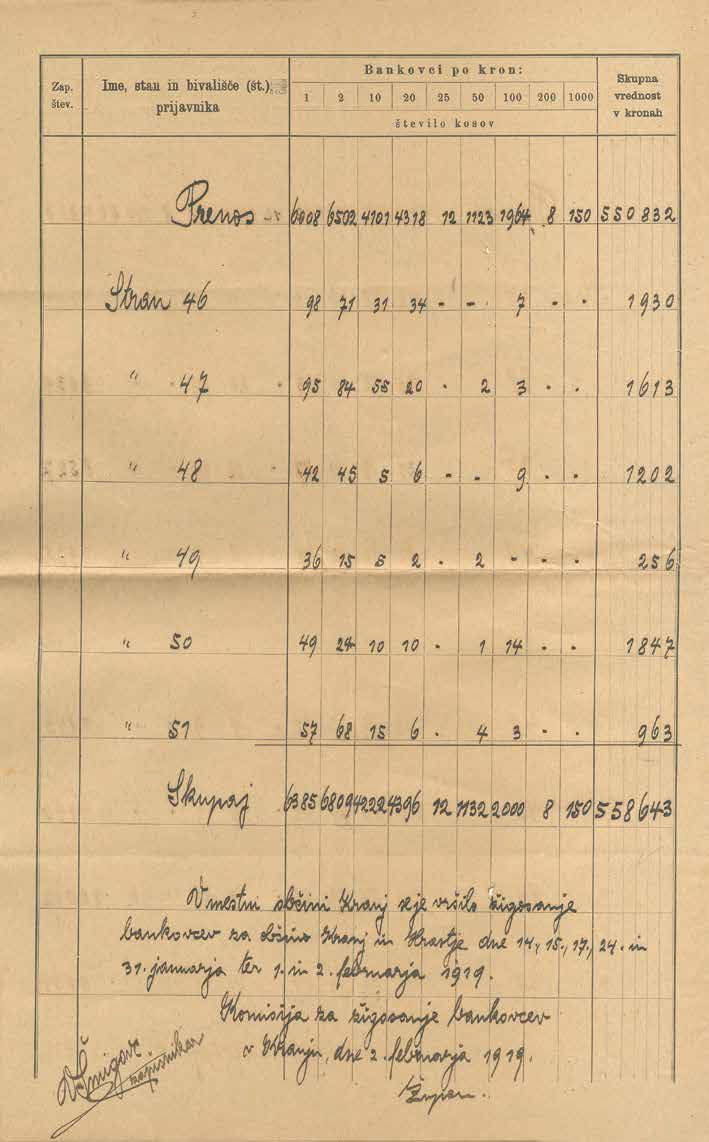 Zap. štev.
Ime, stan in bivališče (št.)
prijavnika
Bankovci po kron:
1 2 10 20 25 50 100 200 1000
število kosov
Skupna
vrednost
v kronah
Prenos 6008 6502 4101 4318 12 1123 1964 8 150 550832
Stran 46 98 71 31 34 - - 7 - - 1930
" 47 95 84 55 20 - 2 3 - - 1613
" 48 42 45 5 6 - - 9 - - 1202
" 49 36 15 5 2 - 2 - - - 256
" 50 49 24 10 10 - 1 14 - - 1847
" 51 57 68 15 6 - 4 3 - - 963
Skupaj 6385 6809 4222 4396 12 1132 2000 8 150 558643
V mestni občini Kranj se je vršilo žigosanje
bankovcev za občino Kranj in Hrastje dne 14., 15., 17., 24. in
31. januarja ter 1. in 2. februarja 1919.
Komisija za žigosanje bankovcev
v Kranju, dne 2. februarja 1919.
Župan.
zapisnikar